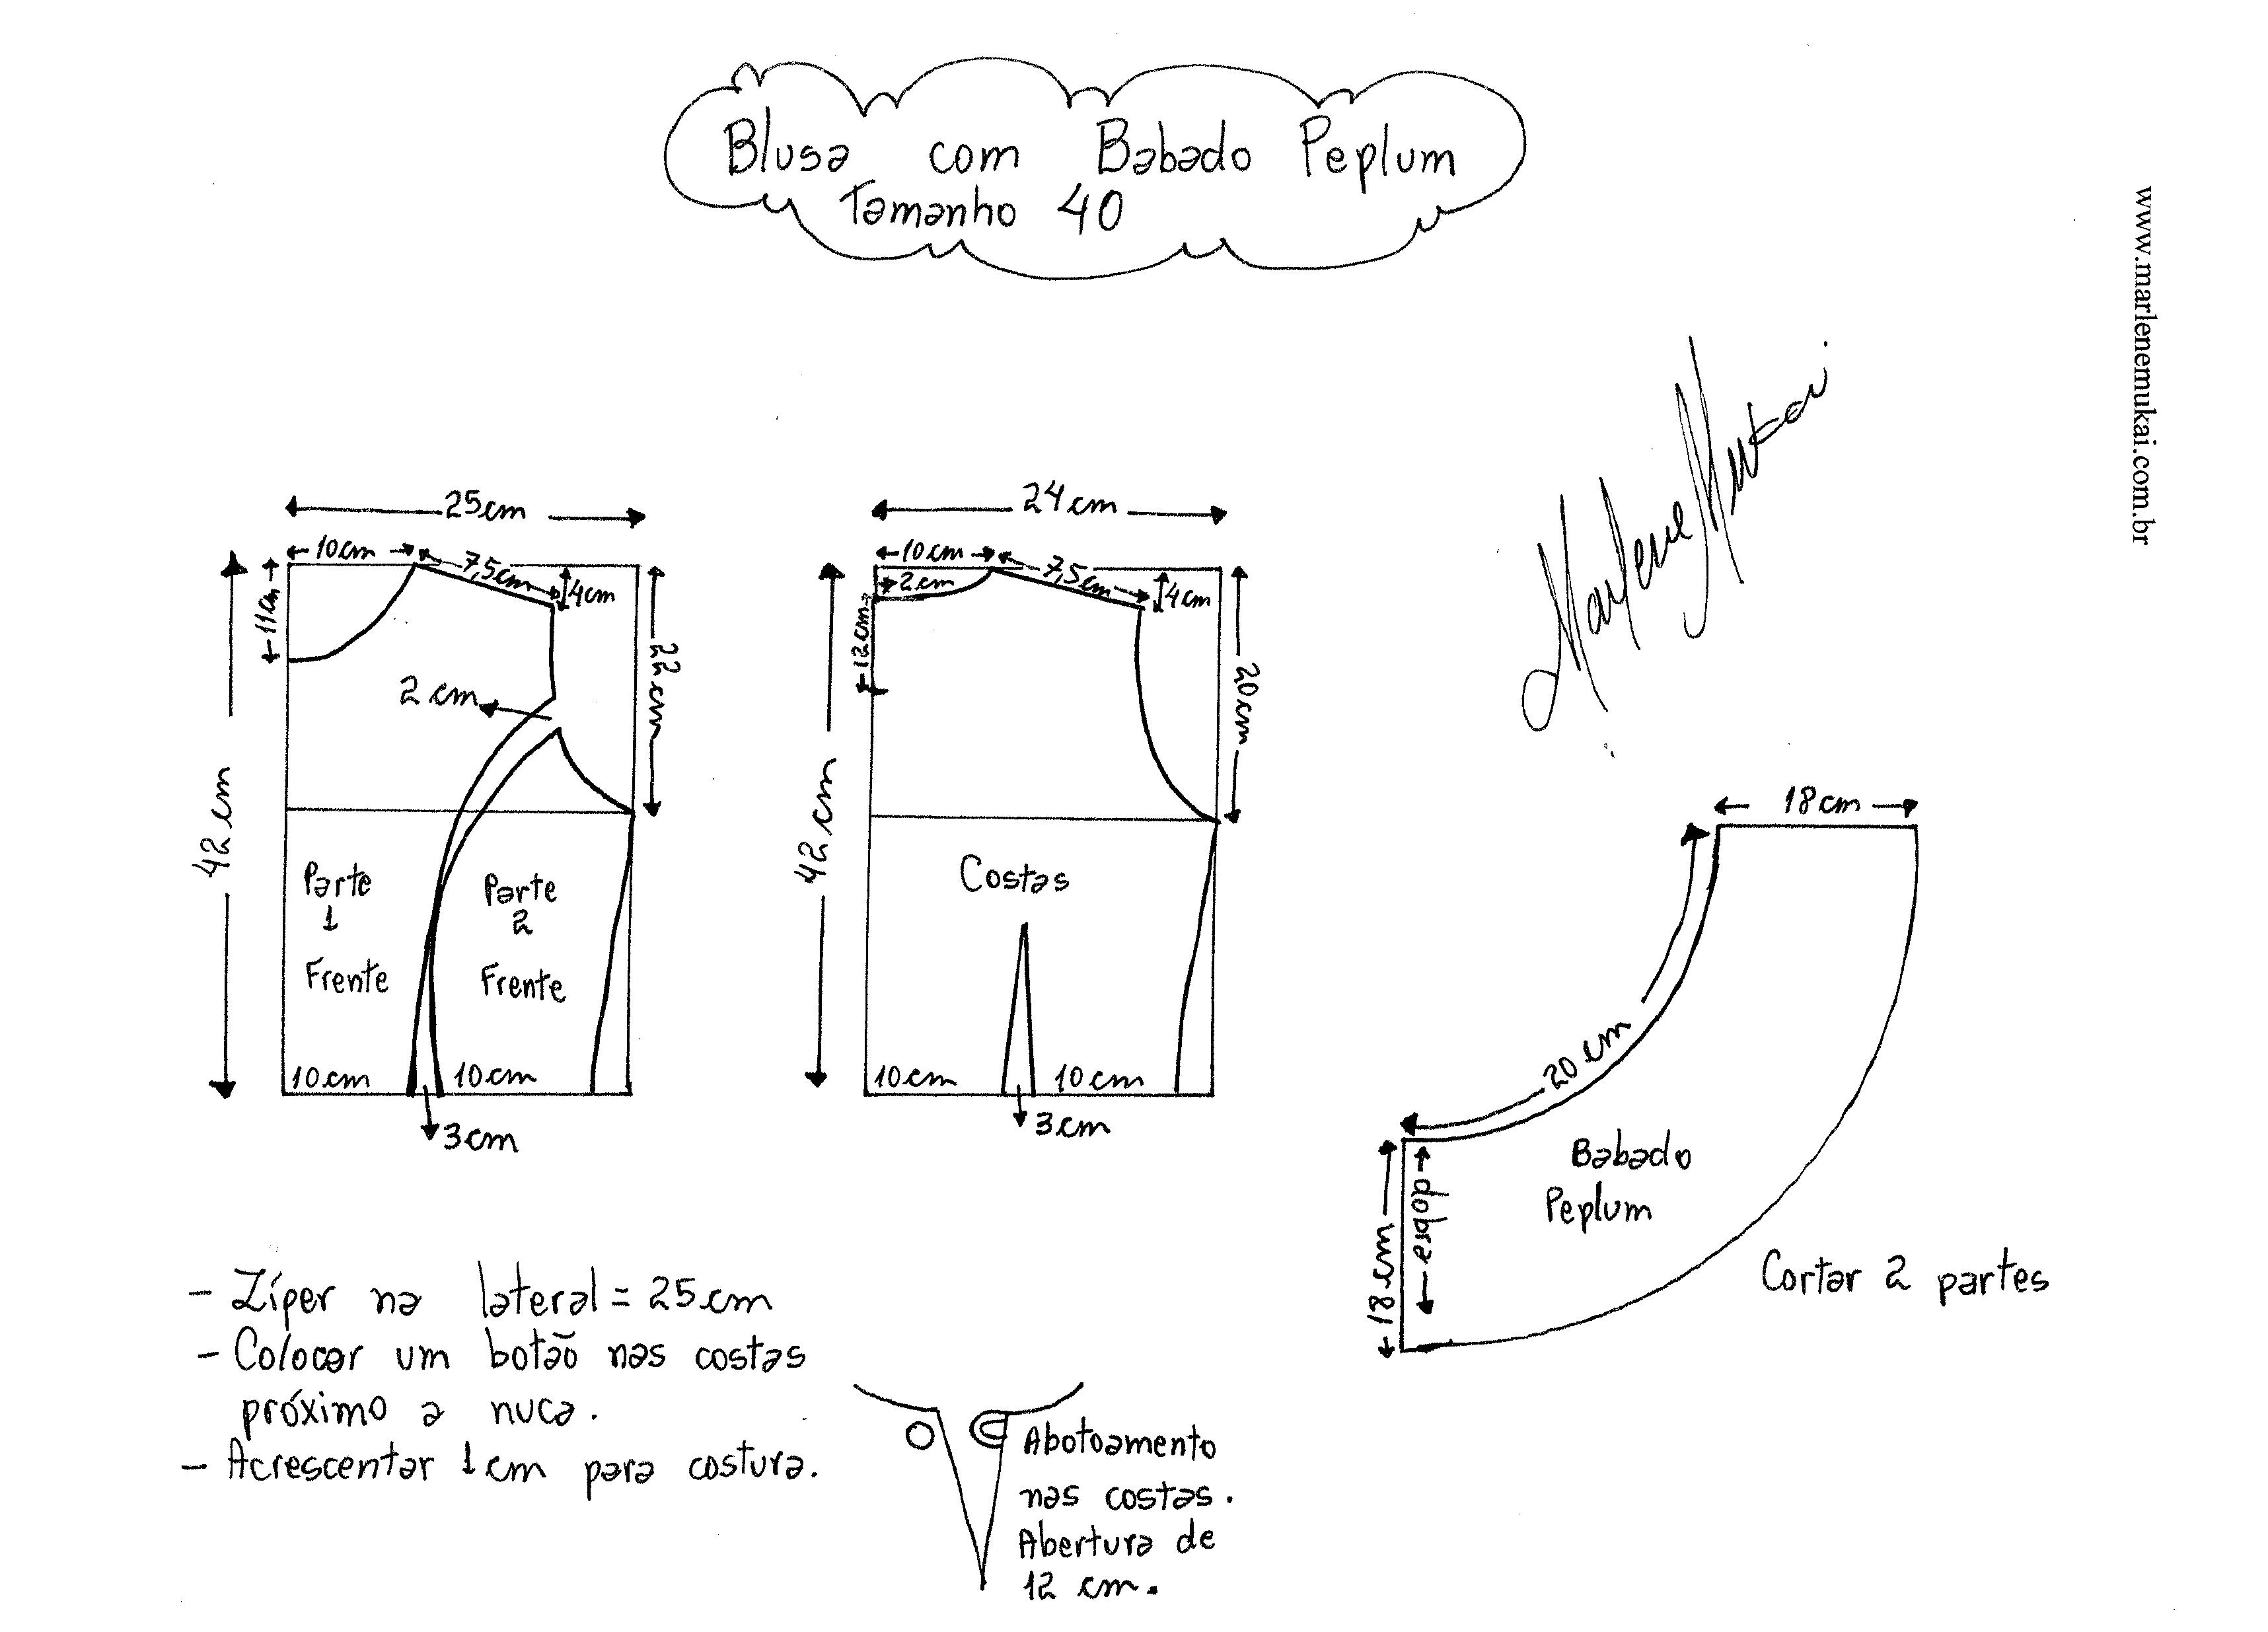 Blusa com Babado Peplum
Tamanho 40
www.marlenemukai.com.br
Marlene Mukai
25cm
10cm
7,5cm
4cm
11cm
22cm
2 cm
42 cm
Parte
1
Frente
Parte
2
Frente
10cm
10cm
3cm
24cm
10cm
7,5cm
2cm
4cm
12cm
20cm
42 cm
Costas
10cm
10cm
3cm
18cm
20 cm
18cm
dobra
Babado
Peplum
Cortar 2 partes
- Zíper na lateral = 25cm
- Colocar um botão nas costas
próximo a nuca.
- Acrescentar 1cm para costura.
Abotoamento
nas costas.
Abertura de
12 cm.